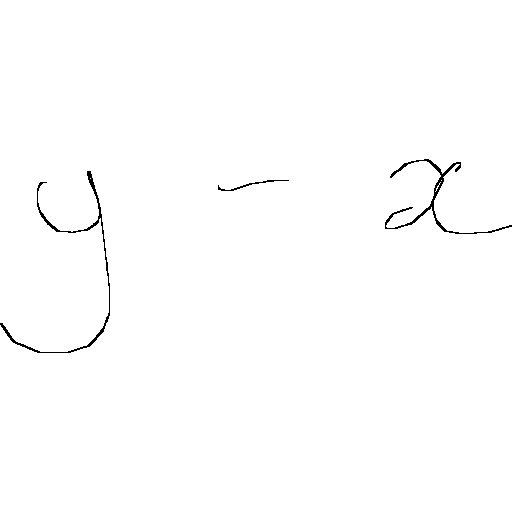 y - x